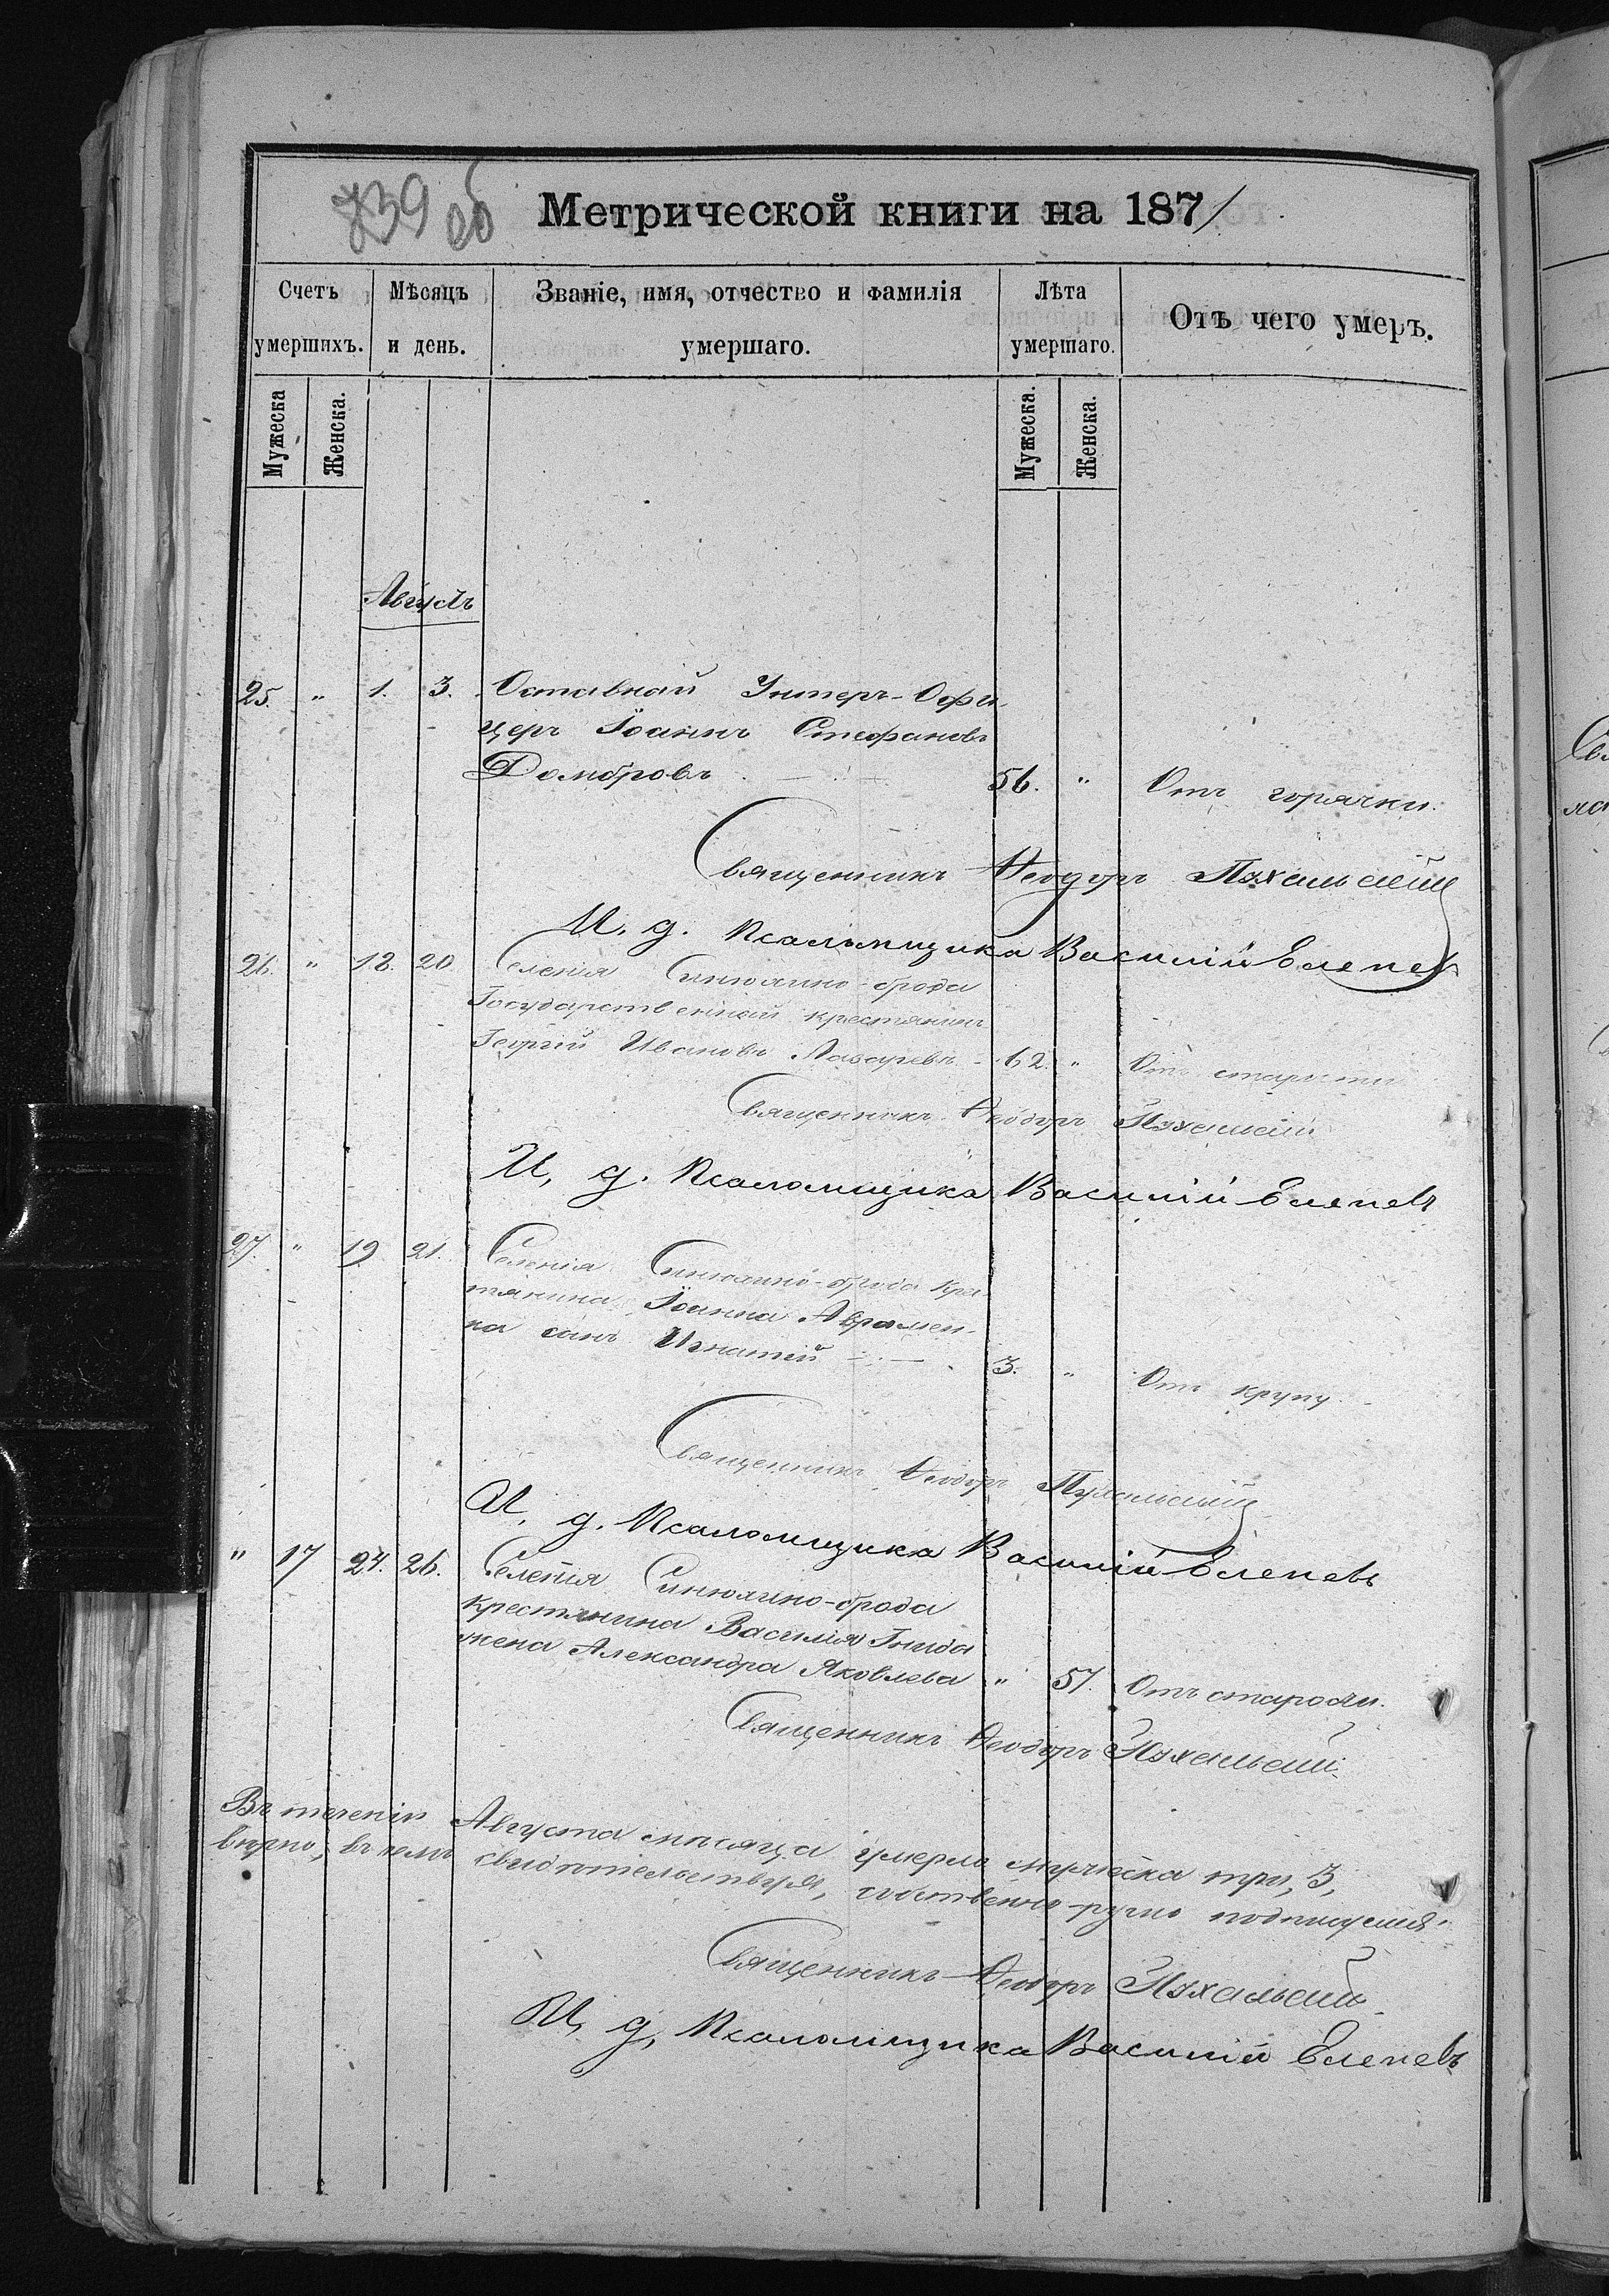 739 об
Метрической книги на 1871
Счетъ умершихъ. Мѣсяцъ и день. Званіе, имя, отчество и фамилія умершаго. Лѣта умершаго. Отъ чего умеръ.
Мужеска Женска. Мужеска. Женска.
Августъ
25. " 1. 3. Отставной Унтеръ-Офи-
церъ Іоаннъ Стефановъ
Домбровъ 56. " Отъ горячки.
Священникъ Ѳеодоръ
И. д. Псаломщика Василій Еленевъ
26. " 18. 20 Селенія Синюхино-брода
Государственный крестянинъ
Георгій Ивановъ Лазаревъ 62. " Отъ старости
Священникъ Ѳеодоръ
И, д. Псаломщика Василій Еленевъ
27. " 19 21. Селенія Синюхино-брода Кре-
тянина Іоанна Аврамен-
ка сынъ Игнатій 3. " Отъ крупу
Священникъ Ѳеодоръ
И. д. Псаломщика Василій Еленевъ
" 17 24. 26. Селенія Синюхино-брода
Крестянина Василія Гнида
жена Александра Яковлева " 57. Отъ старости.
Священникъ Ѳеодоръ
Въ теченіи Августа мѣсяца умерло мужеска три, 3,
вѣрно, въ чемъ свидѣтельствуя, собственно-ручно подписуемся:
Священникъ Ѳеодоръ
И, д, Псаломщика Василій Еленевъ